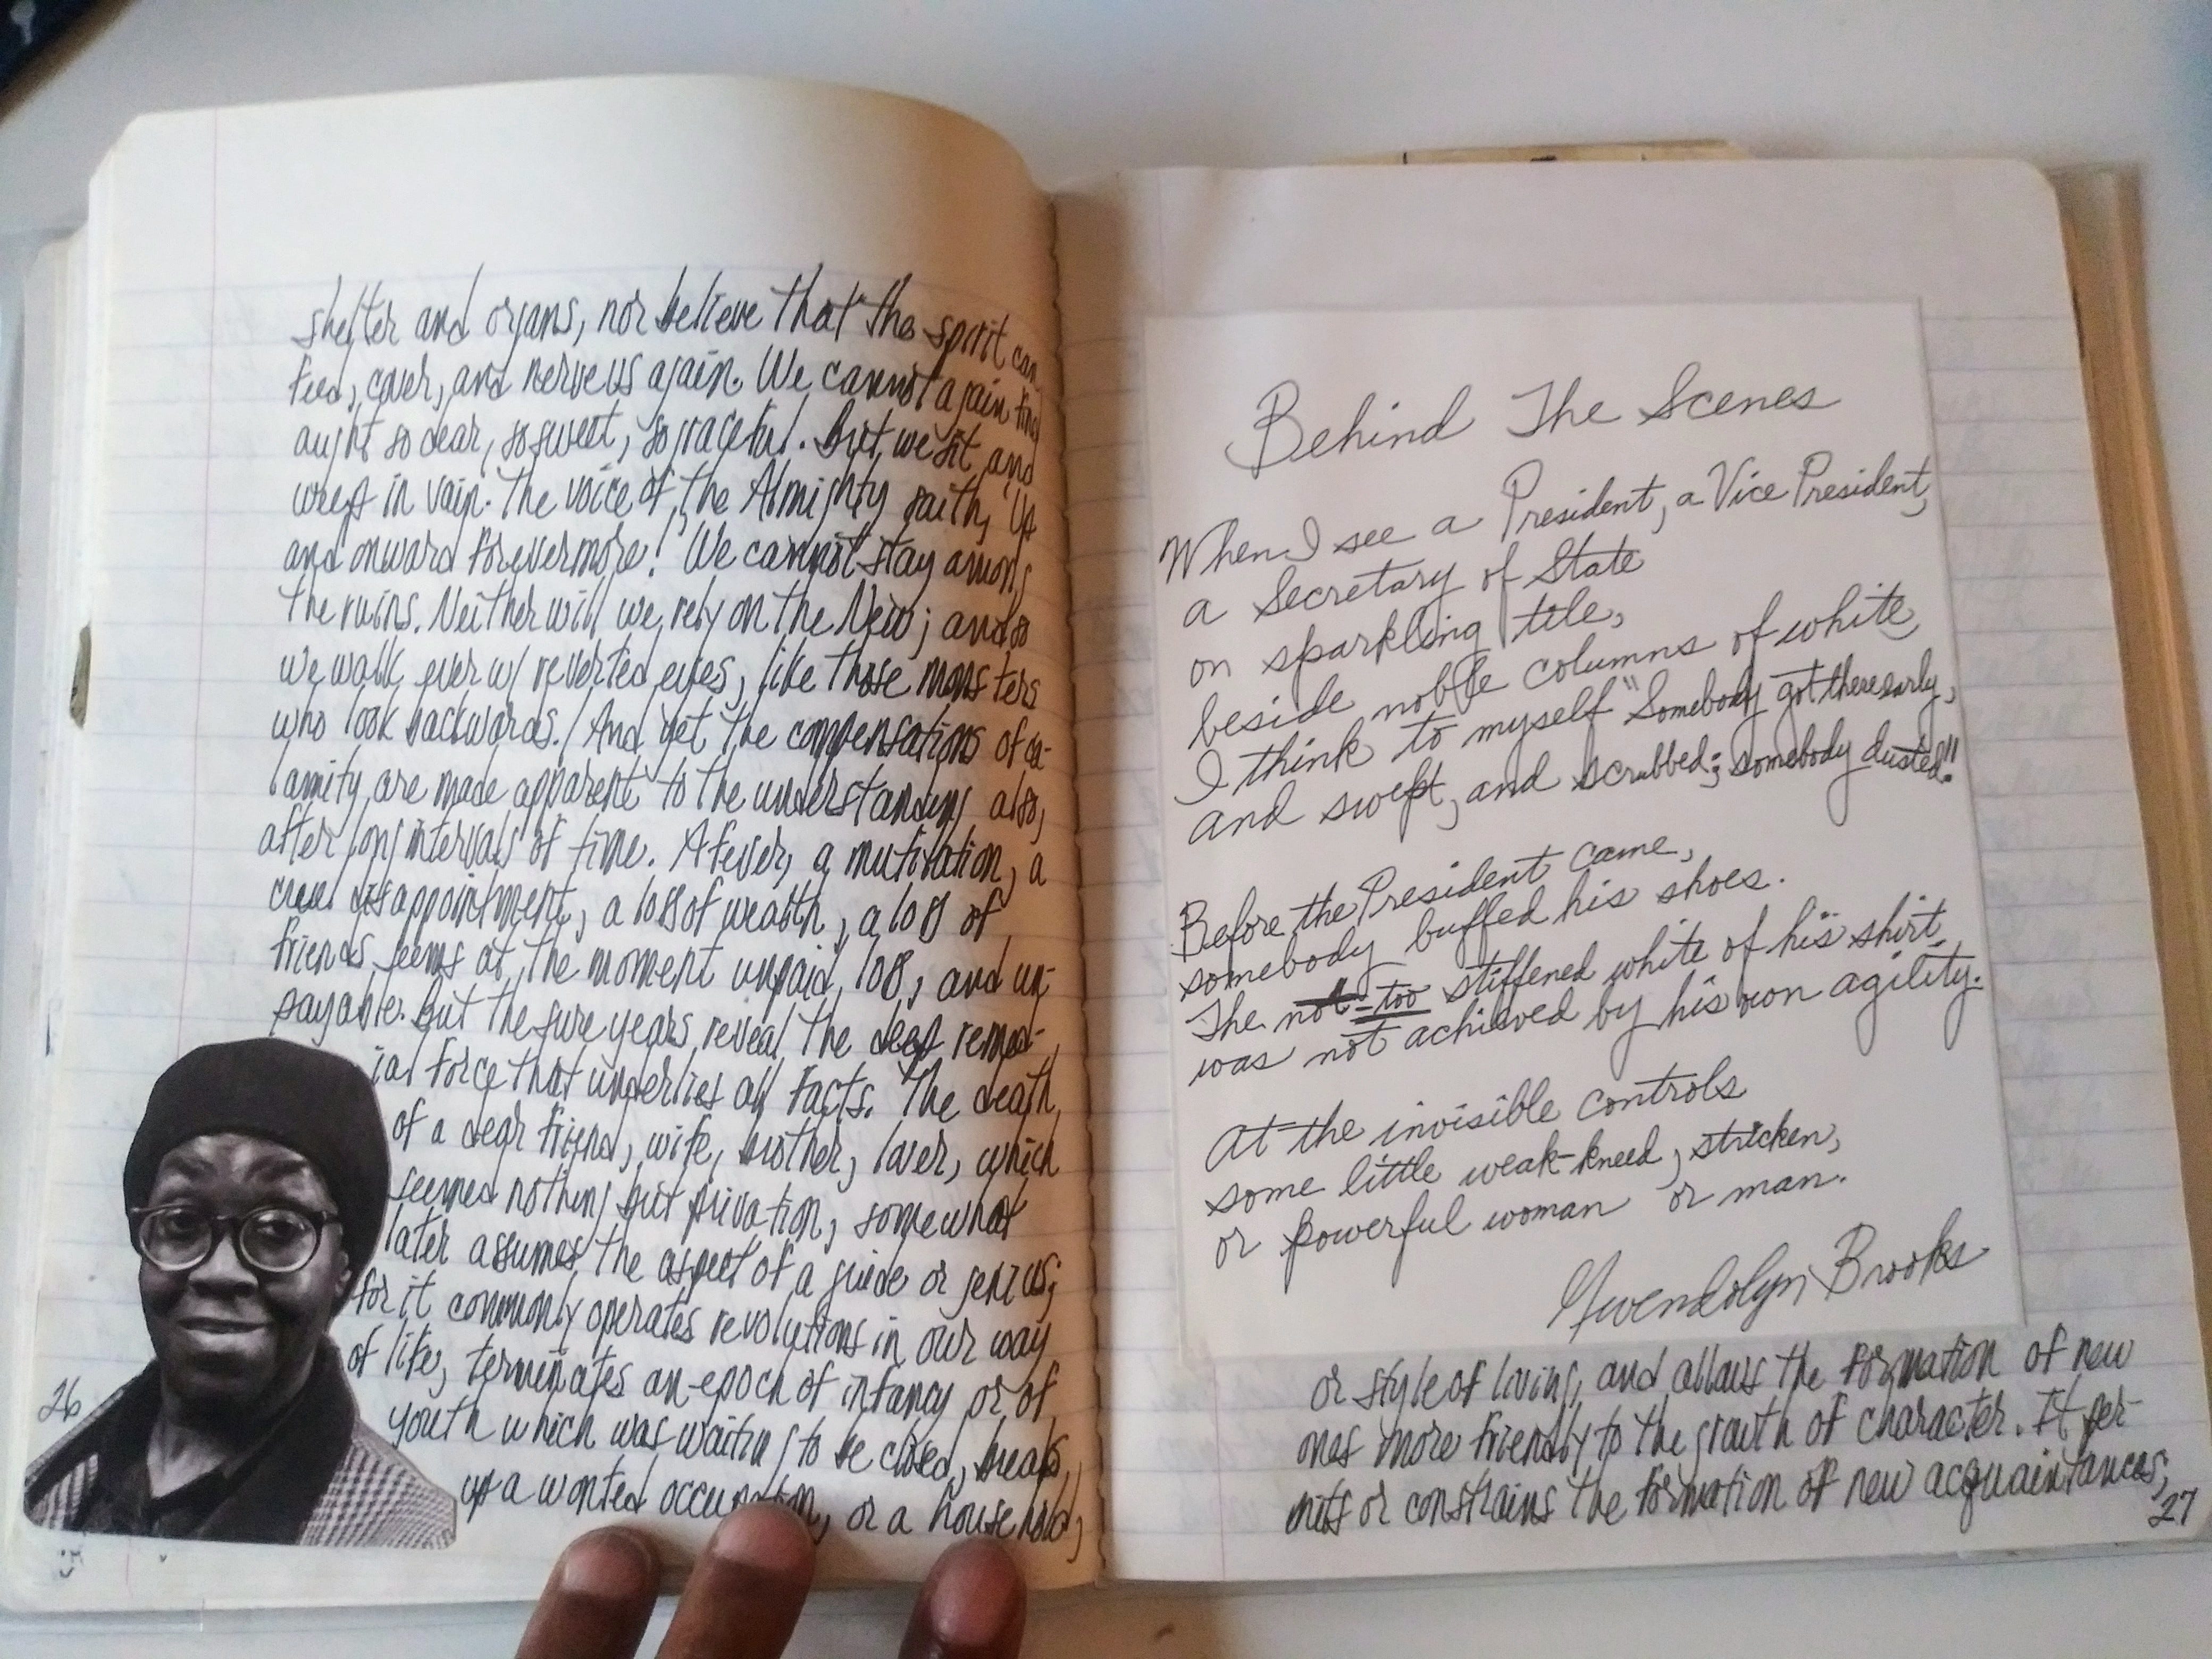 shelter and organs, nor believe that the spirit can
feed, cover, and nerve us again. We cannot again find
aught so dear, so sweet, so graceful. But we sit and
weep in vain. The voice of the Almighty saith, 'Up
and onward forevermore!' We cannot stay among
the ruins. Neither will we rely on the New; and so
we walk ever w/ reverted eyes, like those monsters
who look backwards. / And yet the compensations of ca-
lamity are made apparent to the understanding also,
after long intervals of time. A fever, a mutilation, a
cruel disappointment, a loss of wealth, a loss of
friends seems at the moment unpaid loss, and un-
payable. But the sure years reveal the deep remed-
ial force that underlies all facts. The death
of a dear friend, wife, brother, lover, which
seemed nothing but privation, somewhat
later assumes the aspect of a guide or genius;
for it commonly operates revolutions in our way
of life, terminates an epoch of infancy or of
youth which was waiting to be closed, breaks
up a wonted occupation, or a household,
26
Behind The Scenes
When I see a President, a Vice President,
a Secretary of State
on sparkling tile,
beside noble columns of white,
I think to myself "Somebody got there early,
and swept, and scrubbed; somebody dusted."
Before the President came,
somebody buffed his shoes.
The not-too stiffened white of his shirt
was not achieved by his own agility.
At the invisible controls
some little weak-kneed, stricken,
or powerful woman or man.
Gwendolyn Brooks
or style of living, and allows the formation of new
ones more friendly to the growth of character. It per-
mits or constrains the formation of new acquaintances,
27